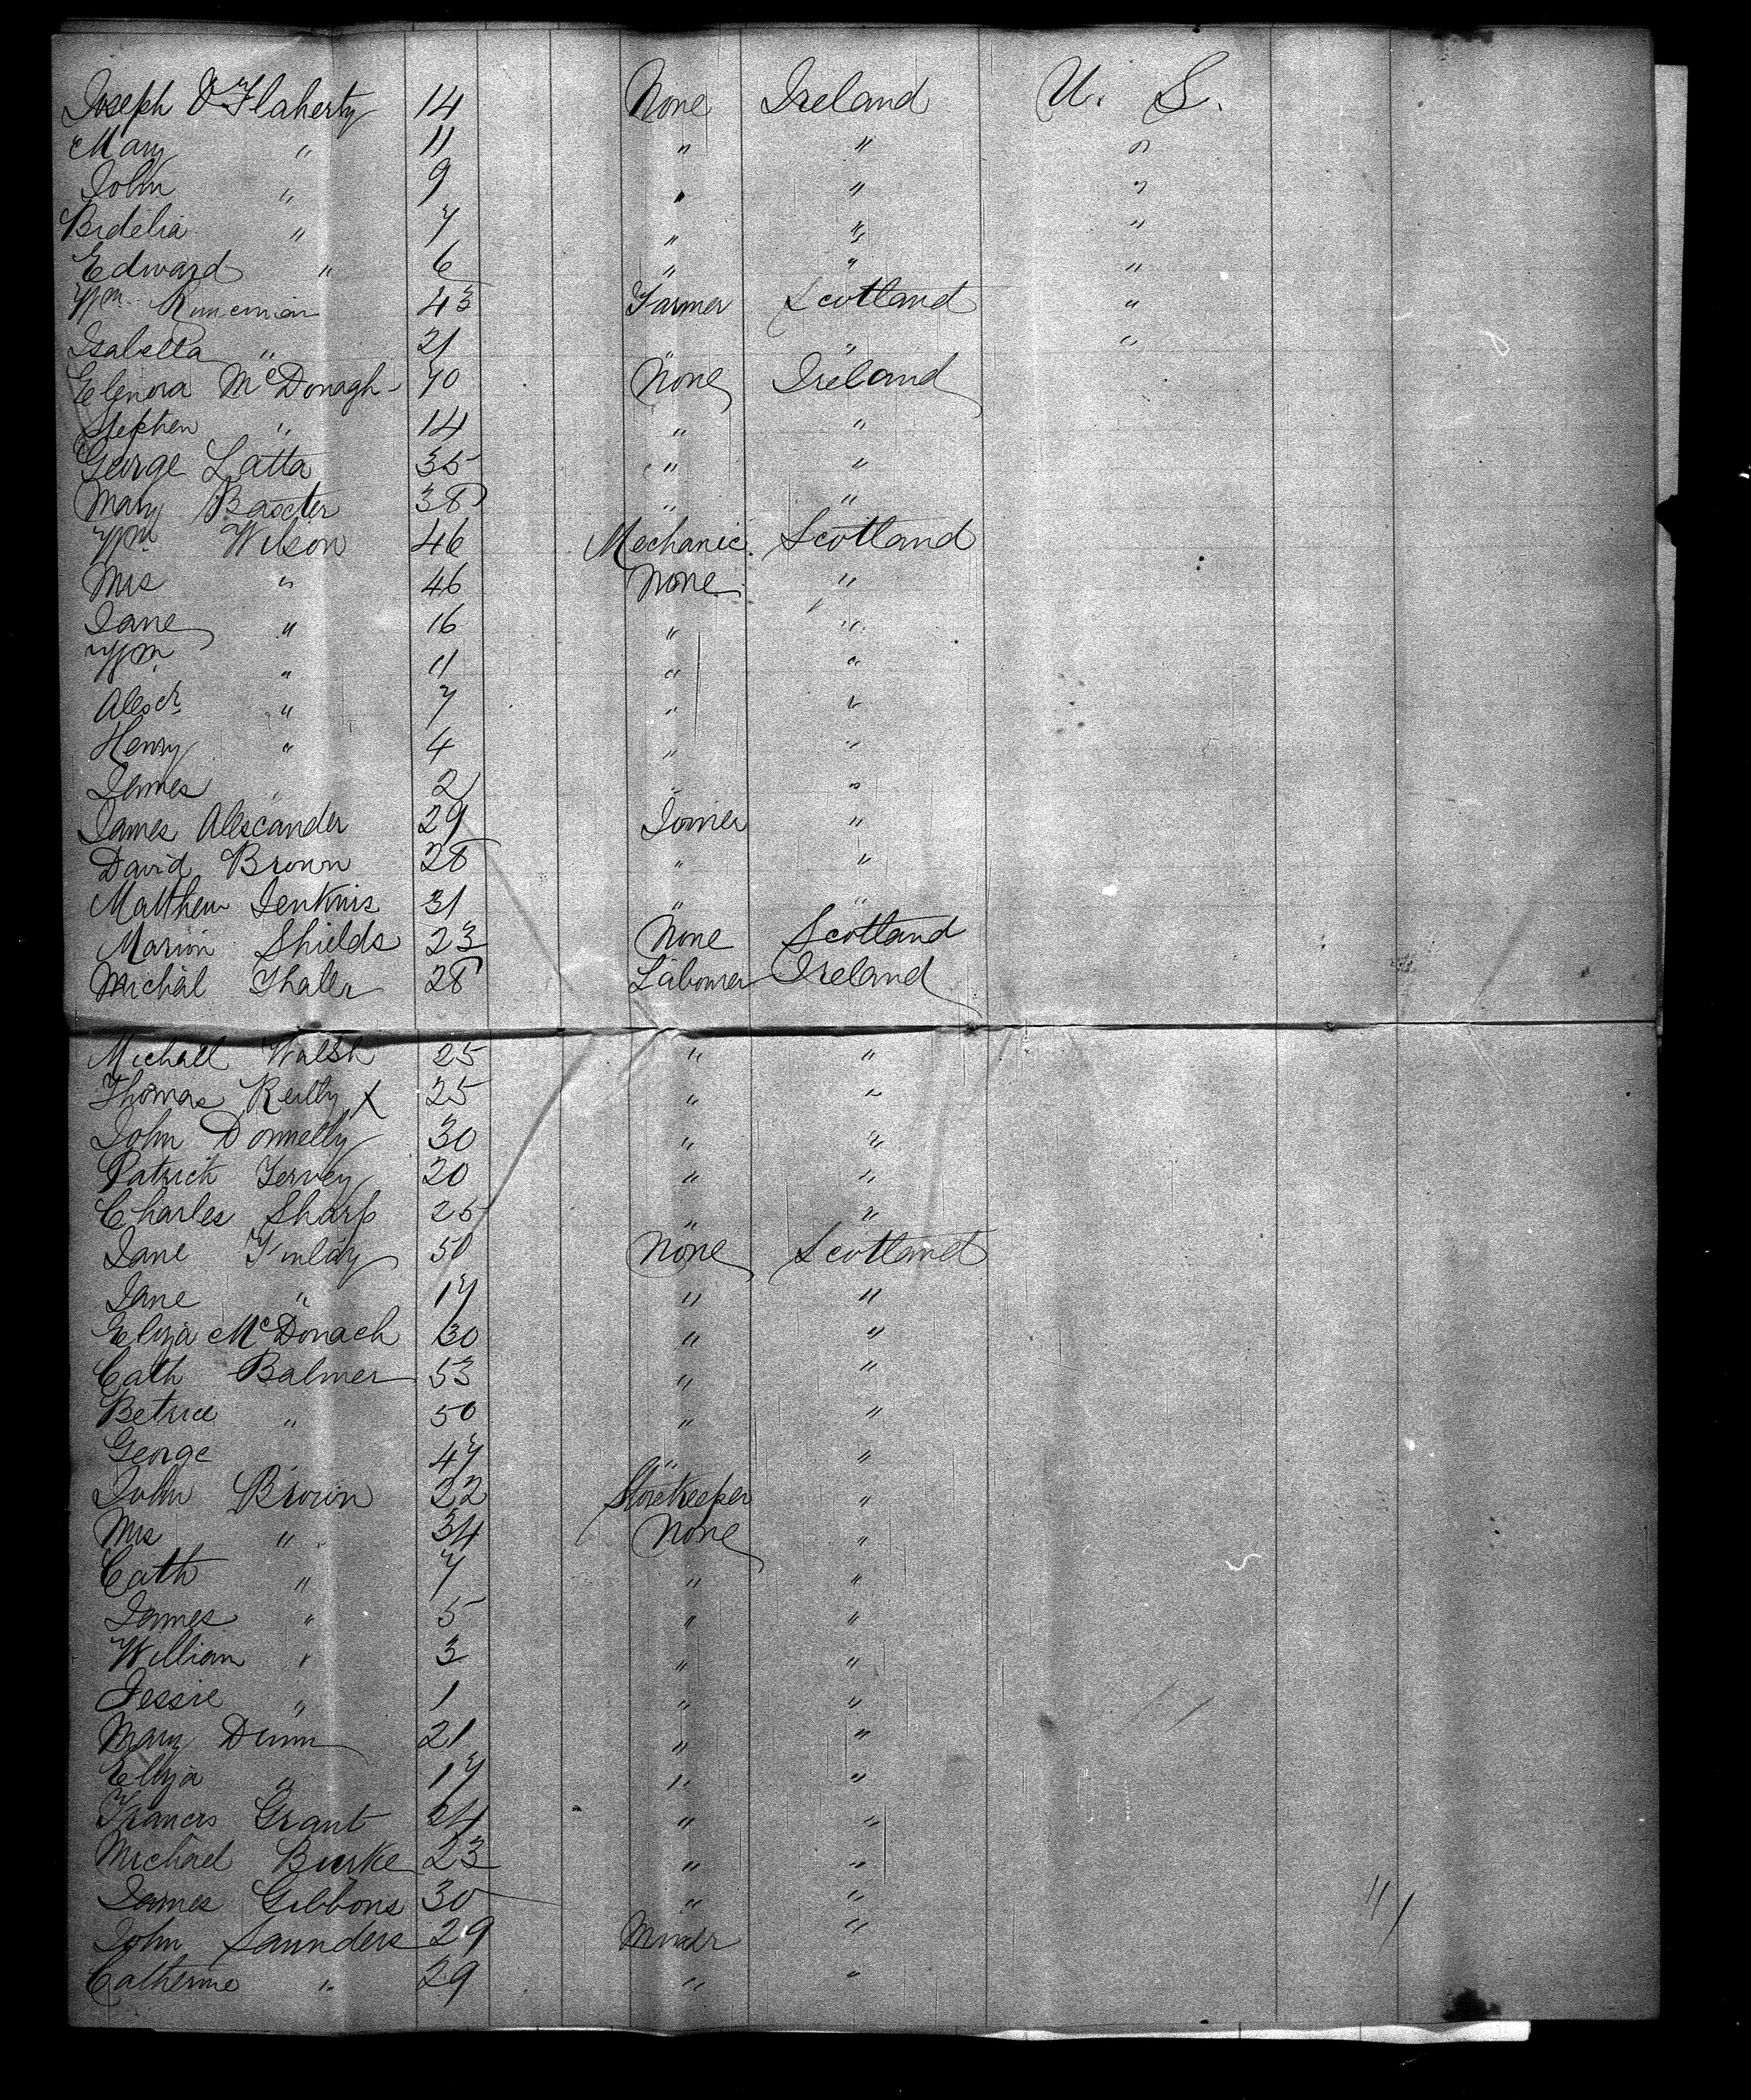 Joseph O'Flaherty 14 None Ireland U. S.
Mary " 11 " " "
John " 9 " " "
Bidelia " 7 " " "
Edward " 6 " " "
Wm Runciman 43 Farmer Scotland "
Isabella " 21 " " "
Elenora McDonagh 70 None Ireland
Stephen " 14 " "
George Latta 35 " "
Mary Baxter 38 " "
Wm Wilson 46 Mechanic Scotland
Mrs " 46 None "
Jane " 16 " "
Wm " 11 " "
Alexr " 7 " "
Henry " 4 " "
James " 2 " "
James Alexander 29 Joiner "
David Brown 28 " "
Matthew Jenkins 31 " "
Marion Shields 23 None Scotland
Michal Thaler 28 Labourer Ireland
Michael Walsh 25 " "
Thomas Reilly X 25 " "
John Donnelly 30 " "
Patrick 20 " "
Charles Sharp 25 " "
Jane Finlay 50 None Scotland
Jane " 17 " "
Eliza McDonach 30 " "
Cath Balmer 53 " "
Betrice " 50 " "
George " 47 " "
John Brown 22 Storekeeper "
Mrs " 34 None "
Cath " 7 " "
James " 5 " "
William " 3 " "
Jessie " 1 " "
Mary Dunn 21 " "
Eliza " 17 " "
Francis Grant 24 " "
Michael Burke 23 " "
James Gibbons 30 " "
John Saunders 29 Miner "
Catherine " 29 " "